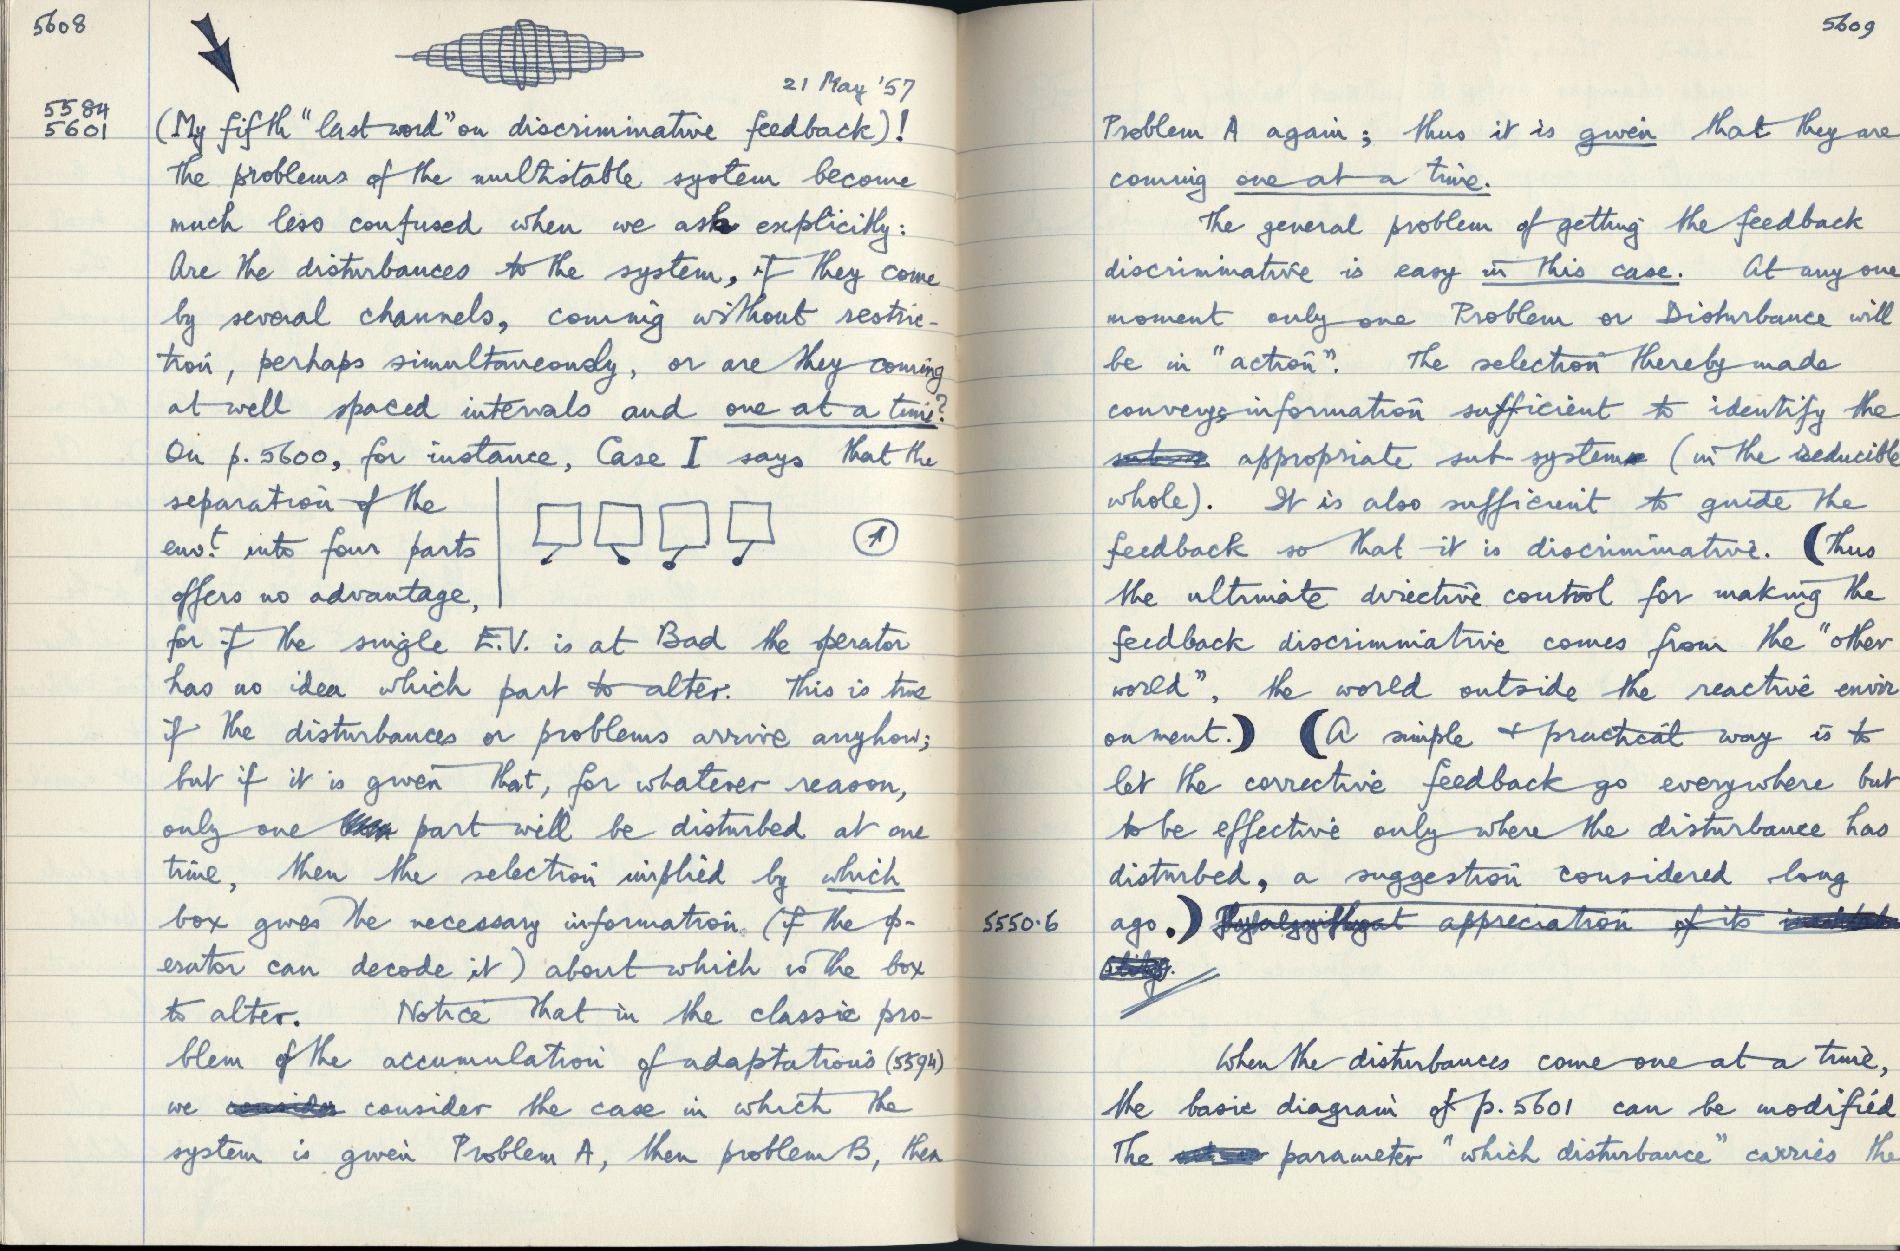 5608
21 May '57
5584
5601
(My fifth "last word" on discriminative feedback)!
The problems of the multistable system become
much less confused when we ask explicitly:
Are the disturbances to the system, if they come
by several channels, coming without restric-
tion, perhaps simultaneously, or are they coming
at well spaced intervals and one at a time?
On p. 5600, for instance, Case I says that the
separation of the
envt. into four parts
offers no advantage,
1
for if the single E.V. is at Bad the operator
has no idea which part to alter. This is true
if the disturbances or problems arrive anyhow;
but if it is given that, for whatever reason,
only one part will be disturbed at one
time, then the selection implied by which
box gives the necessary information (if the op-
erator can decode it) about which is the box
to alter. Notice that in the classic pro-
blem of the accumulation of adaptations (5594)
we consider consider the case in which the
system is given Problem A, then problem B, then
5609
Problem A again; thus it is given that they are
coming one at a time.
The general problem of getting the feedback
discriminative is easy in this case. At any one
moment only one Problem or Disturbance will
be in "action". The selection thereby made
conveys information sufficient to identify the
appropriate sub-system (in the reducible
whole). It is also sufficient to guide the
feedback so that it is discriminative. (Thus
the ultimate directive control for making the
feedback discriminative comes from the "other
world", the world outside the reactive envir
onment.) (A simple & practical way is to
let the corrective feedback go everywhere but
to be effective only where the disturbance has
disturbed, a suggestion considered long
5550.6
ago.) appreciation of its
When the disturbances come one at a time,
the basic diagram of p. 5601 can be modified
The parameter "which disturbance" carries the